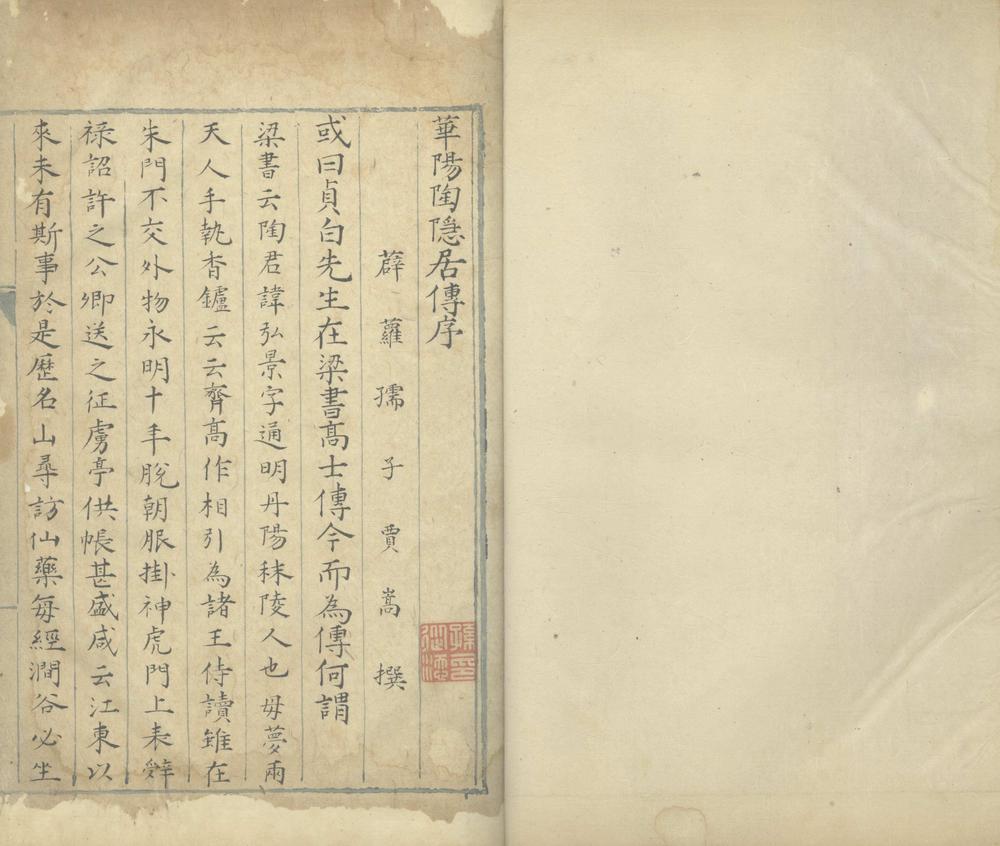 華陽陶隱居傳序
薜蘿孺子賈嵩撰
或曰貞白先生在梁書髙士傳今而為傳何謂
梁書云陶君諱弘景字通明丹陽秣陵人也毋夢兩
天人手執香鑪云云齊髙作相引為諸王侍讀雖在
朱門不交外物永明十年脫朝服掛神虎門上表辤
祿詔許之公卿送之征虜亭供帳甚盛咸云江東以
來未有斯事於是歷名山尋訪仙藥每經澗谷必坐